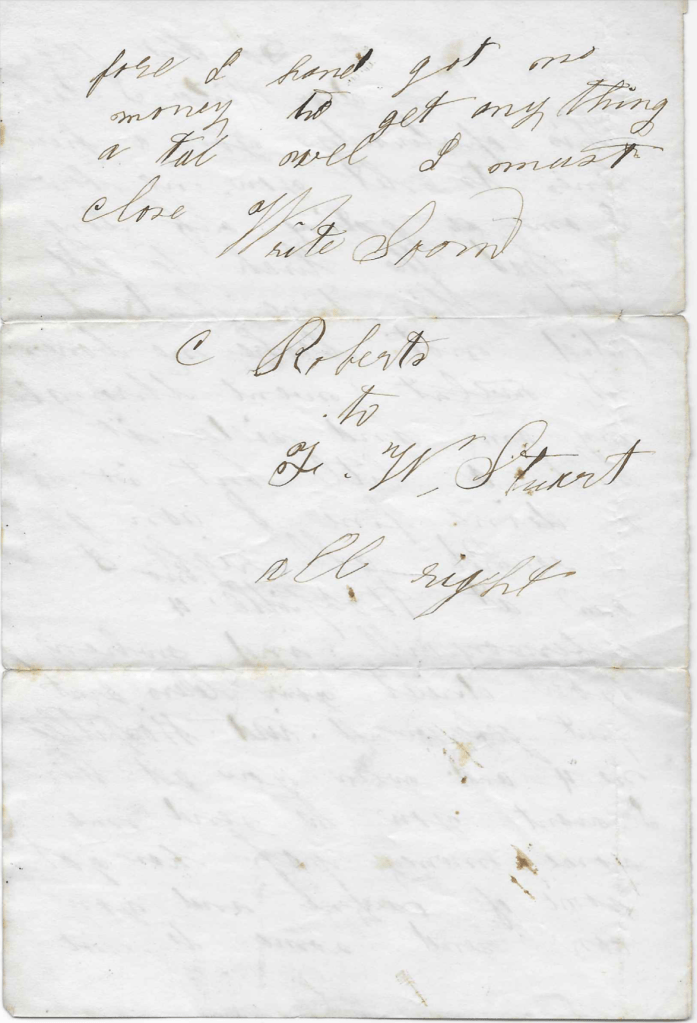 fore I hant got no
money to get any thing
a tal wel I must
close Write Soon
C Roberts
to
F. W. Stuart
all right